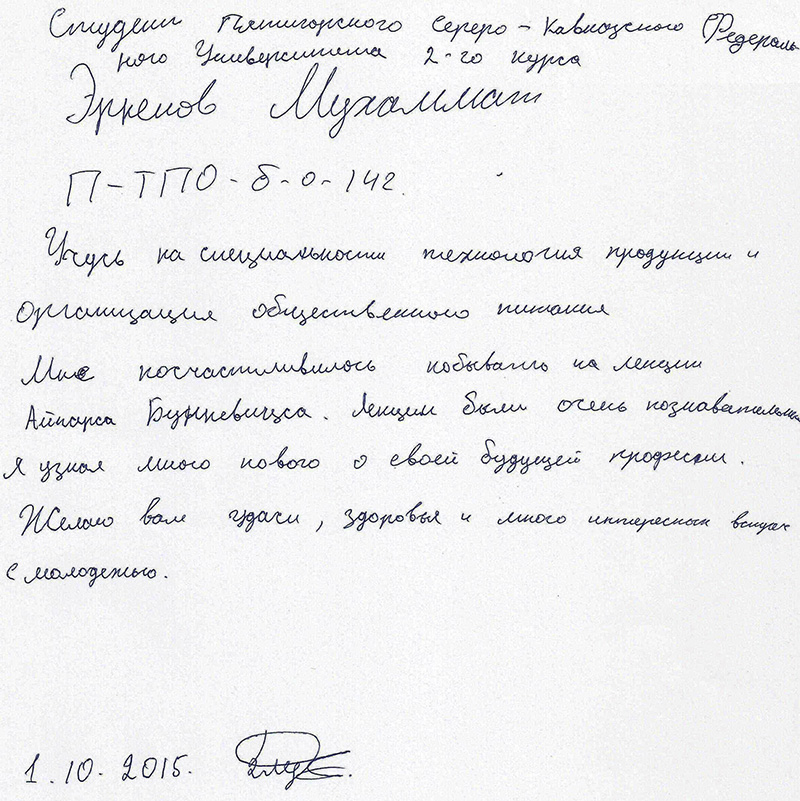 Студент Пятигорского Северо-Кавказского Федераль
ного Университета 2-го курса
Эркенов Мухаммат
П-ТПО-б-о-142.
Учусь на специальности технология продукции и
организация общественного питания
Мне посчастливилось побывать на лекции
Айварса Бункевицса. Лекции были очень познавательны
Я узнал много нового о своей будущей профессии.
Желаю вам удачи, здоровья и много интересных встреч
с молодежью.
1.10.2015.